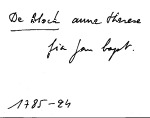 De Block anna therese
fia Jan bapt.
1785-24